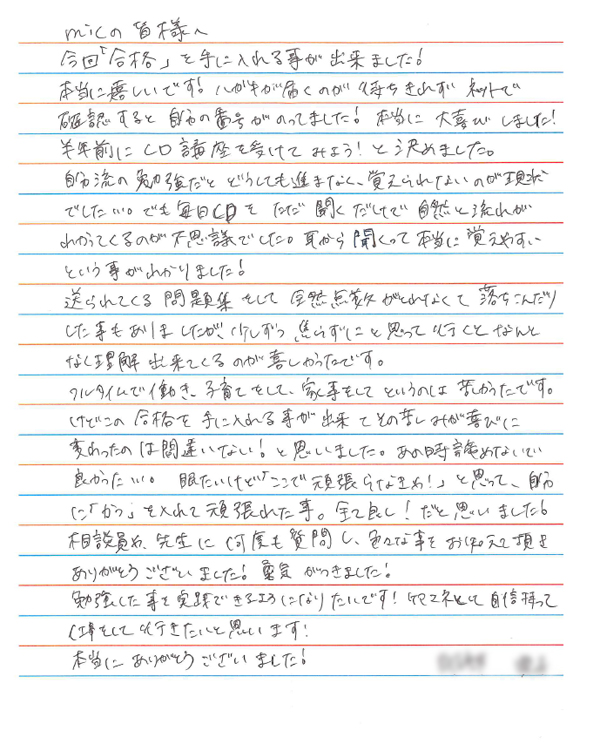 micの皆様へ
今回「合格」を手に入れる事が出来ました!
本当に嬉しいです! ハガキが届くのが待ちきれず ネットで
確認すると 自分の番号がのってました! 本当に 大喜び しました!
半年前に CD講座を受けて みよう! と決めました。
自分流の勉強だと どうしても進まなく、覚えられないのが現状
でした…。でも毎日CDを ただ 聞くだけで 自然と流れが
わかってくるのが不思議でした。耳から聞くって本当に覚えやすい
という事がわかりました!
送られてくる問題集をして 全然点数がとれなくて 落ちこんだり
した事もありましたが、少しずつ 焦らずにと思って行くとなんと
なく理解出来てくるのが喜しかったです。
フルタイムで働き、子育てをして、家事をしてというのは苦しかったです。
けどこの合格を手に入れる事が出来てその苦しみが喜びに
変わったのは間違いない!と思いました。あの時諦めないで
良かった…。眠たいけど「ここで頑張らなきゃ!」と思って、自分
に「かつ」を入れて頑張れた事。全て良し!だと思いました!
相談員や、先生に何度も質問し、色々な事をお教えて頂き
ありがとうございました! 勇気がつきました!
勉強した事を実践できるようになりたいです! ケアマネとして自信持って
仕事をして行きたいと思います!
本当にありがとうございました!